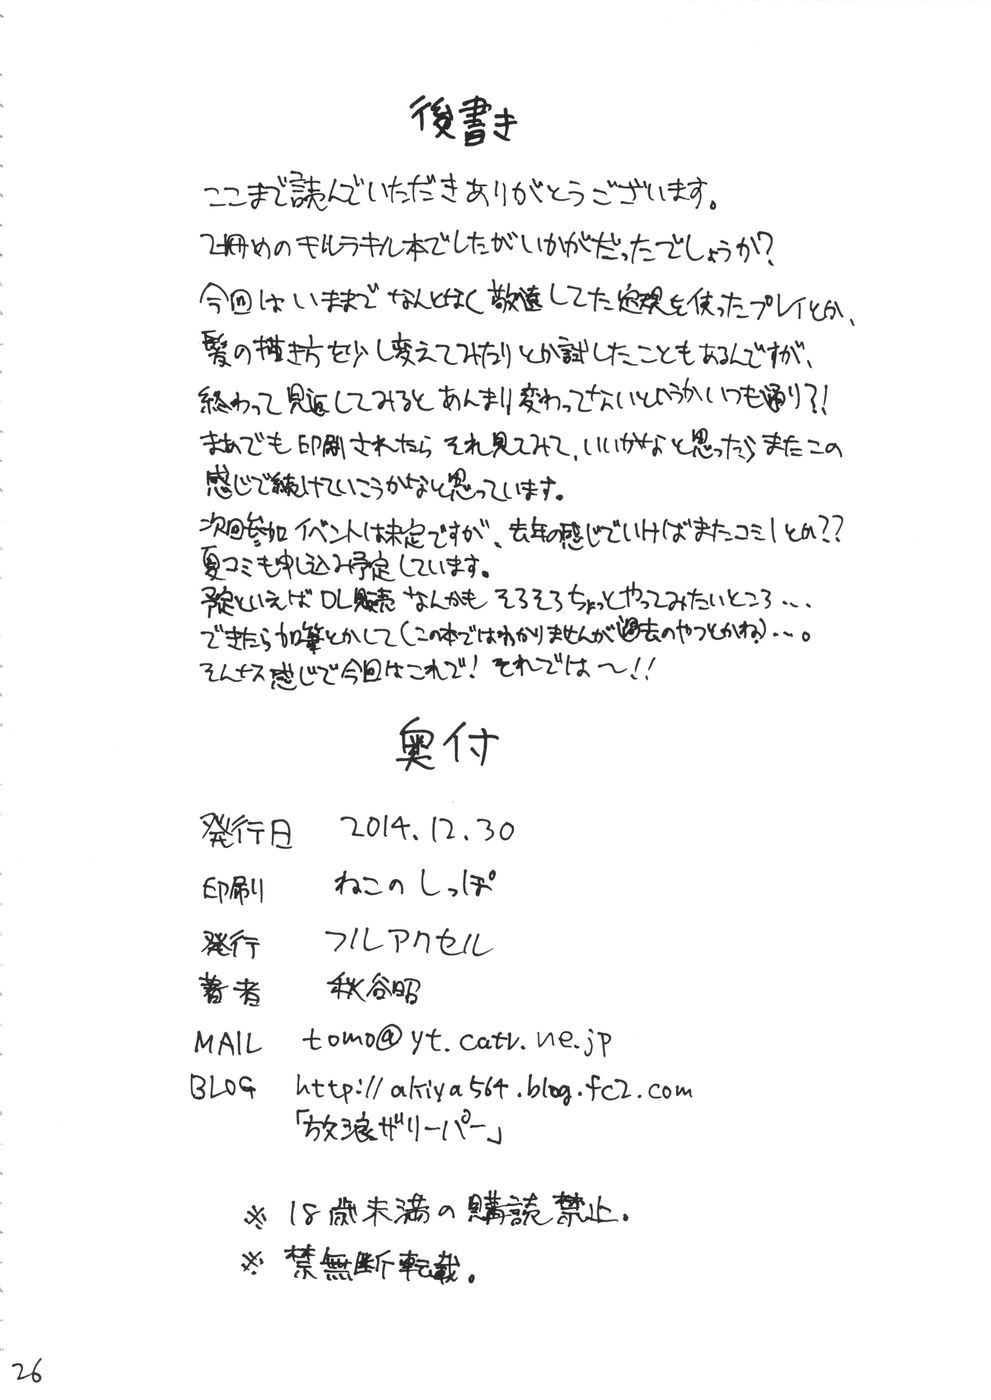 後書き
ここまで読んでいただきありがとうございます。
2冊めのキルラキル本でしたがいかがだったでしょうか?
今回はいままでなんとなく敬遠してた定規を使ったプレイとか、
髪の描き方を少し変えてみたりとか試したこともあるんですが、
終わって見返してみるとあんまり変わってないというかいつも通り?!
まあでも印刷されたらそれ見てみて、いいかなと思ったらまたこの
感じで続けていこうかなと思っています。
次回参加イベントは未定ですが、去年の感じでいけばまたコミ1とか??
夏コミも申し込み予定しています。
予定といえばDL販売なんかもそろそろちょっとやってみたいところ...
できたら加筆とかして(この本ではわかりませんが過去のやつとかね)...。
そんなス感じで今回はこれで!それでは〜!!
奥付
発行日 2014.12.30
印刷 ねこのしっぽ
発行 フルアクセル
著者 秋谷昭
MAIL tomo@yt.catv.ne.jp
BLOG http://akiya564.blog.fc2.com
「放浪ザリーパー」
※18歳未満の購読禁止。
※禁無断転載。
26